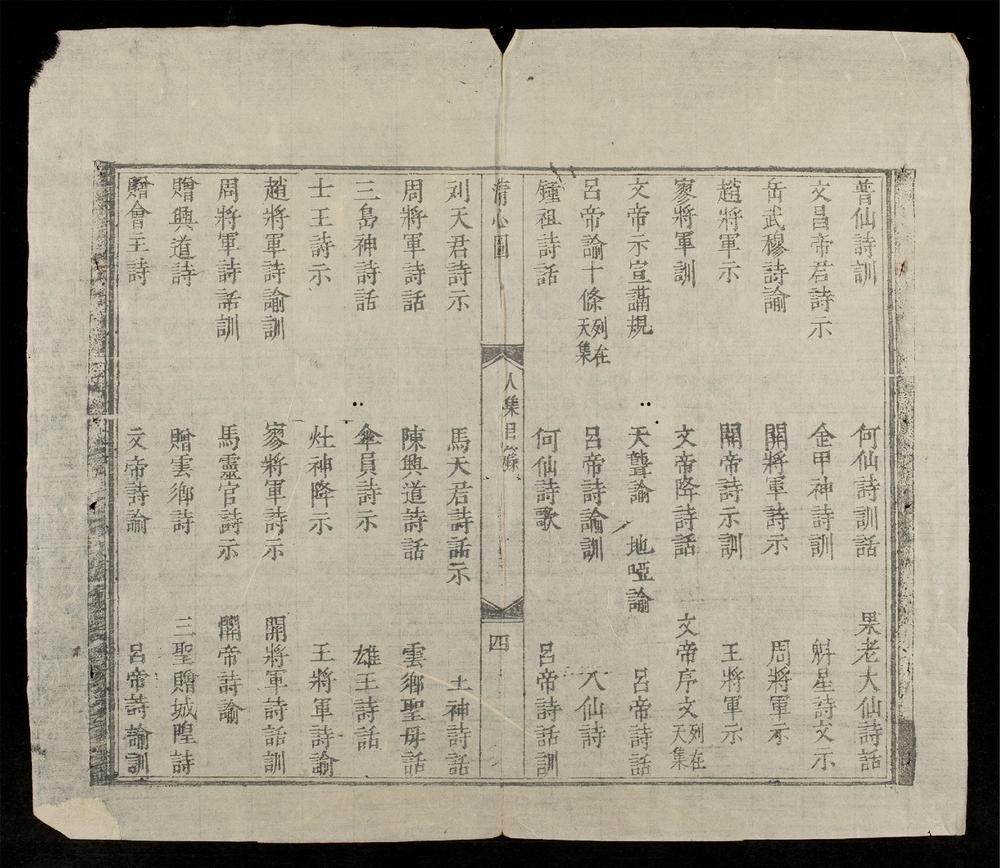 普仙詩訓 何仙詩訓話 果老大仙詩話
文昌帝君詩示 金甲神詩訓 魁星詩文示
岳武穆詩諭 開將軍詩示 周將軍示
趙將軍示 開帝詩示訓 王將軍示
寥將軍訓 文帝降詩話 文帝序文列在天集
文帝示宣講規 天聾諭 地啞諭 呂帝詩話
呂帝諭十條列在天集 呂帝詩諭訓 八仙詩
鍾祖詩話 何仙詩歌 呂帝詩話訓
清心圖 人集目錄 四
刘天君詩示 馬天君詩話示 土神詩話
周將軍詩話 陳興道詩話 雲鄉聖母話
三島神詩話 傘員詩示 雄王詩話
士王詩示 灶神降示 王將軍詩諭
趙將軍詩諭訓 寥將軍詩示 開將軍詩話訓
周將軍詩話訓 馬靈官詩示 關帝詩諭
贈興道詩 贈雲鄉詩 三聖贈城隍詩
贈會主詩 文帝詩諭 呂帝詩諭訓